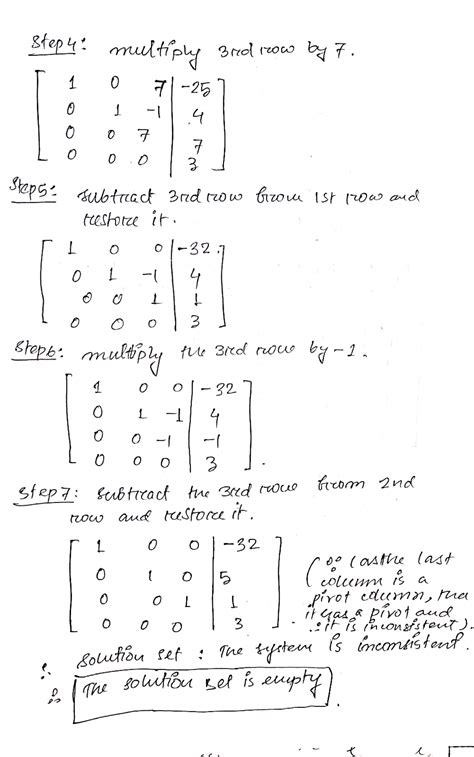 Step 4: multiply 3rd row by 7.
1 0 7 -25
0 1 -1 4
0 0 7 7
0 0 0 3
Step 5: subtract 3rd row from 1st row and
restore it.
1 0 0 -32
0 1 -1 4
0 0 1 1
0 0 0 3
Step 6: multiply the 3rd row by -1.
1 0 0 -32
0 1 -1 4
0 0 -1 -1
0 0 0 3
Step 7: subtract the 3rd row from 2nd
row and restore it.
1 0 0 -32
0 1 0 5
0 0 1 1
0 0 0 3
(∵ (as the last
column is a
pivot column,
it has a pivot and
∴ it is inconsistent).
∴ Solution set : The system is inconsistent.
∴ The solution set is empty.